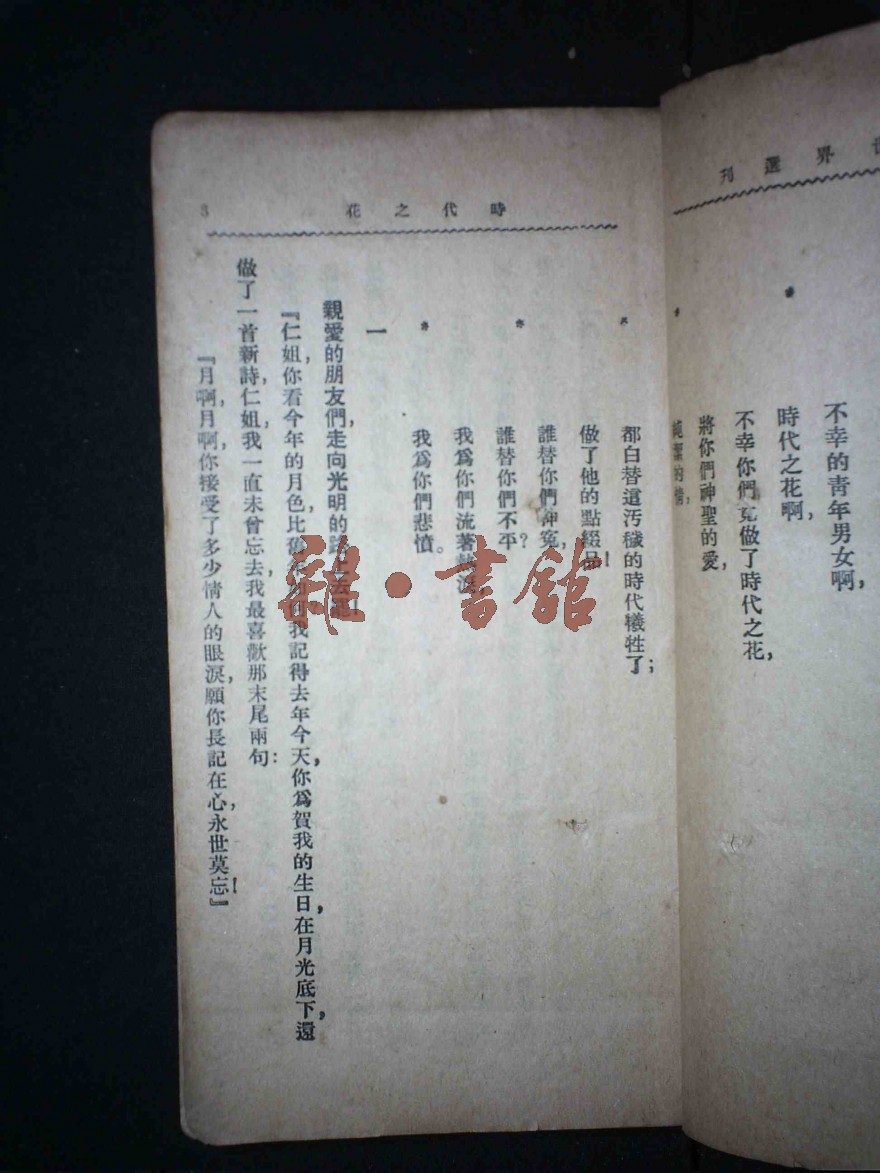 界選刊
不幸的青年男女啊,
時代之花啊,
不幸你們竟做了時代之花,
將你們神聖的愛,
純潔的情,
時代之花
3
都白替這汚穢的時代犧牲了;
做了他的點綴品!
誰替你們伸冤,
誰替你們不平?
我爲你們流著
我爲你們悲憤。
一
親愛的朋友們,走向光明的路上去罷!
『仁姐,你看今年的月色比舊年如何我記得去年今天,你爲賀我的生日,在月光底下,還
做了一首新詩,仁姐,我一直未曾忘去,我最喜歡那末尾兩句:
『月啊,月啊,你接受了多少情人的眼淚,願你長記在心,永世莫忘!』
雜·書館